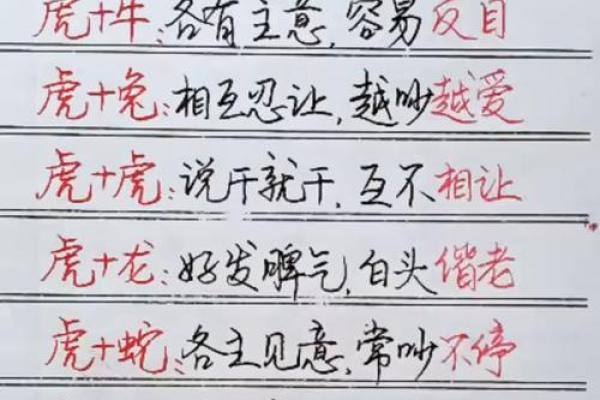 虎+牛:各有主意,容易反目
虎+兔:相互忍让,越吵越爱
虎+虎:说干就干,互不相让
虎+龙:好发脾气,白头偕老
虎+蛇:各主见意,常吵不停